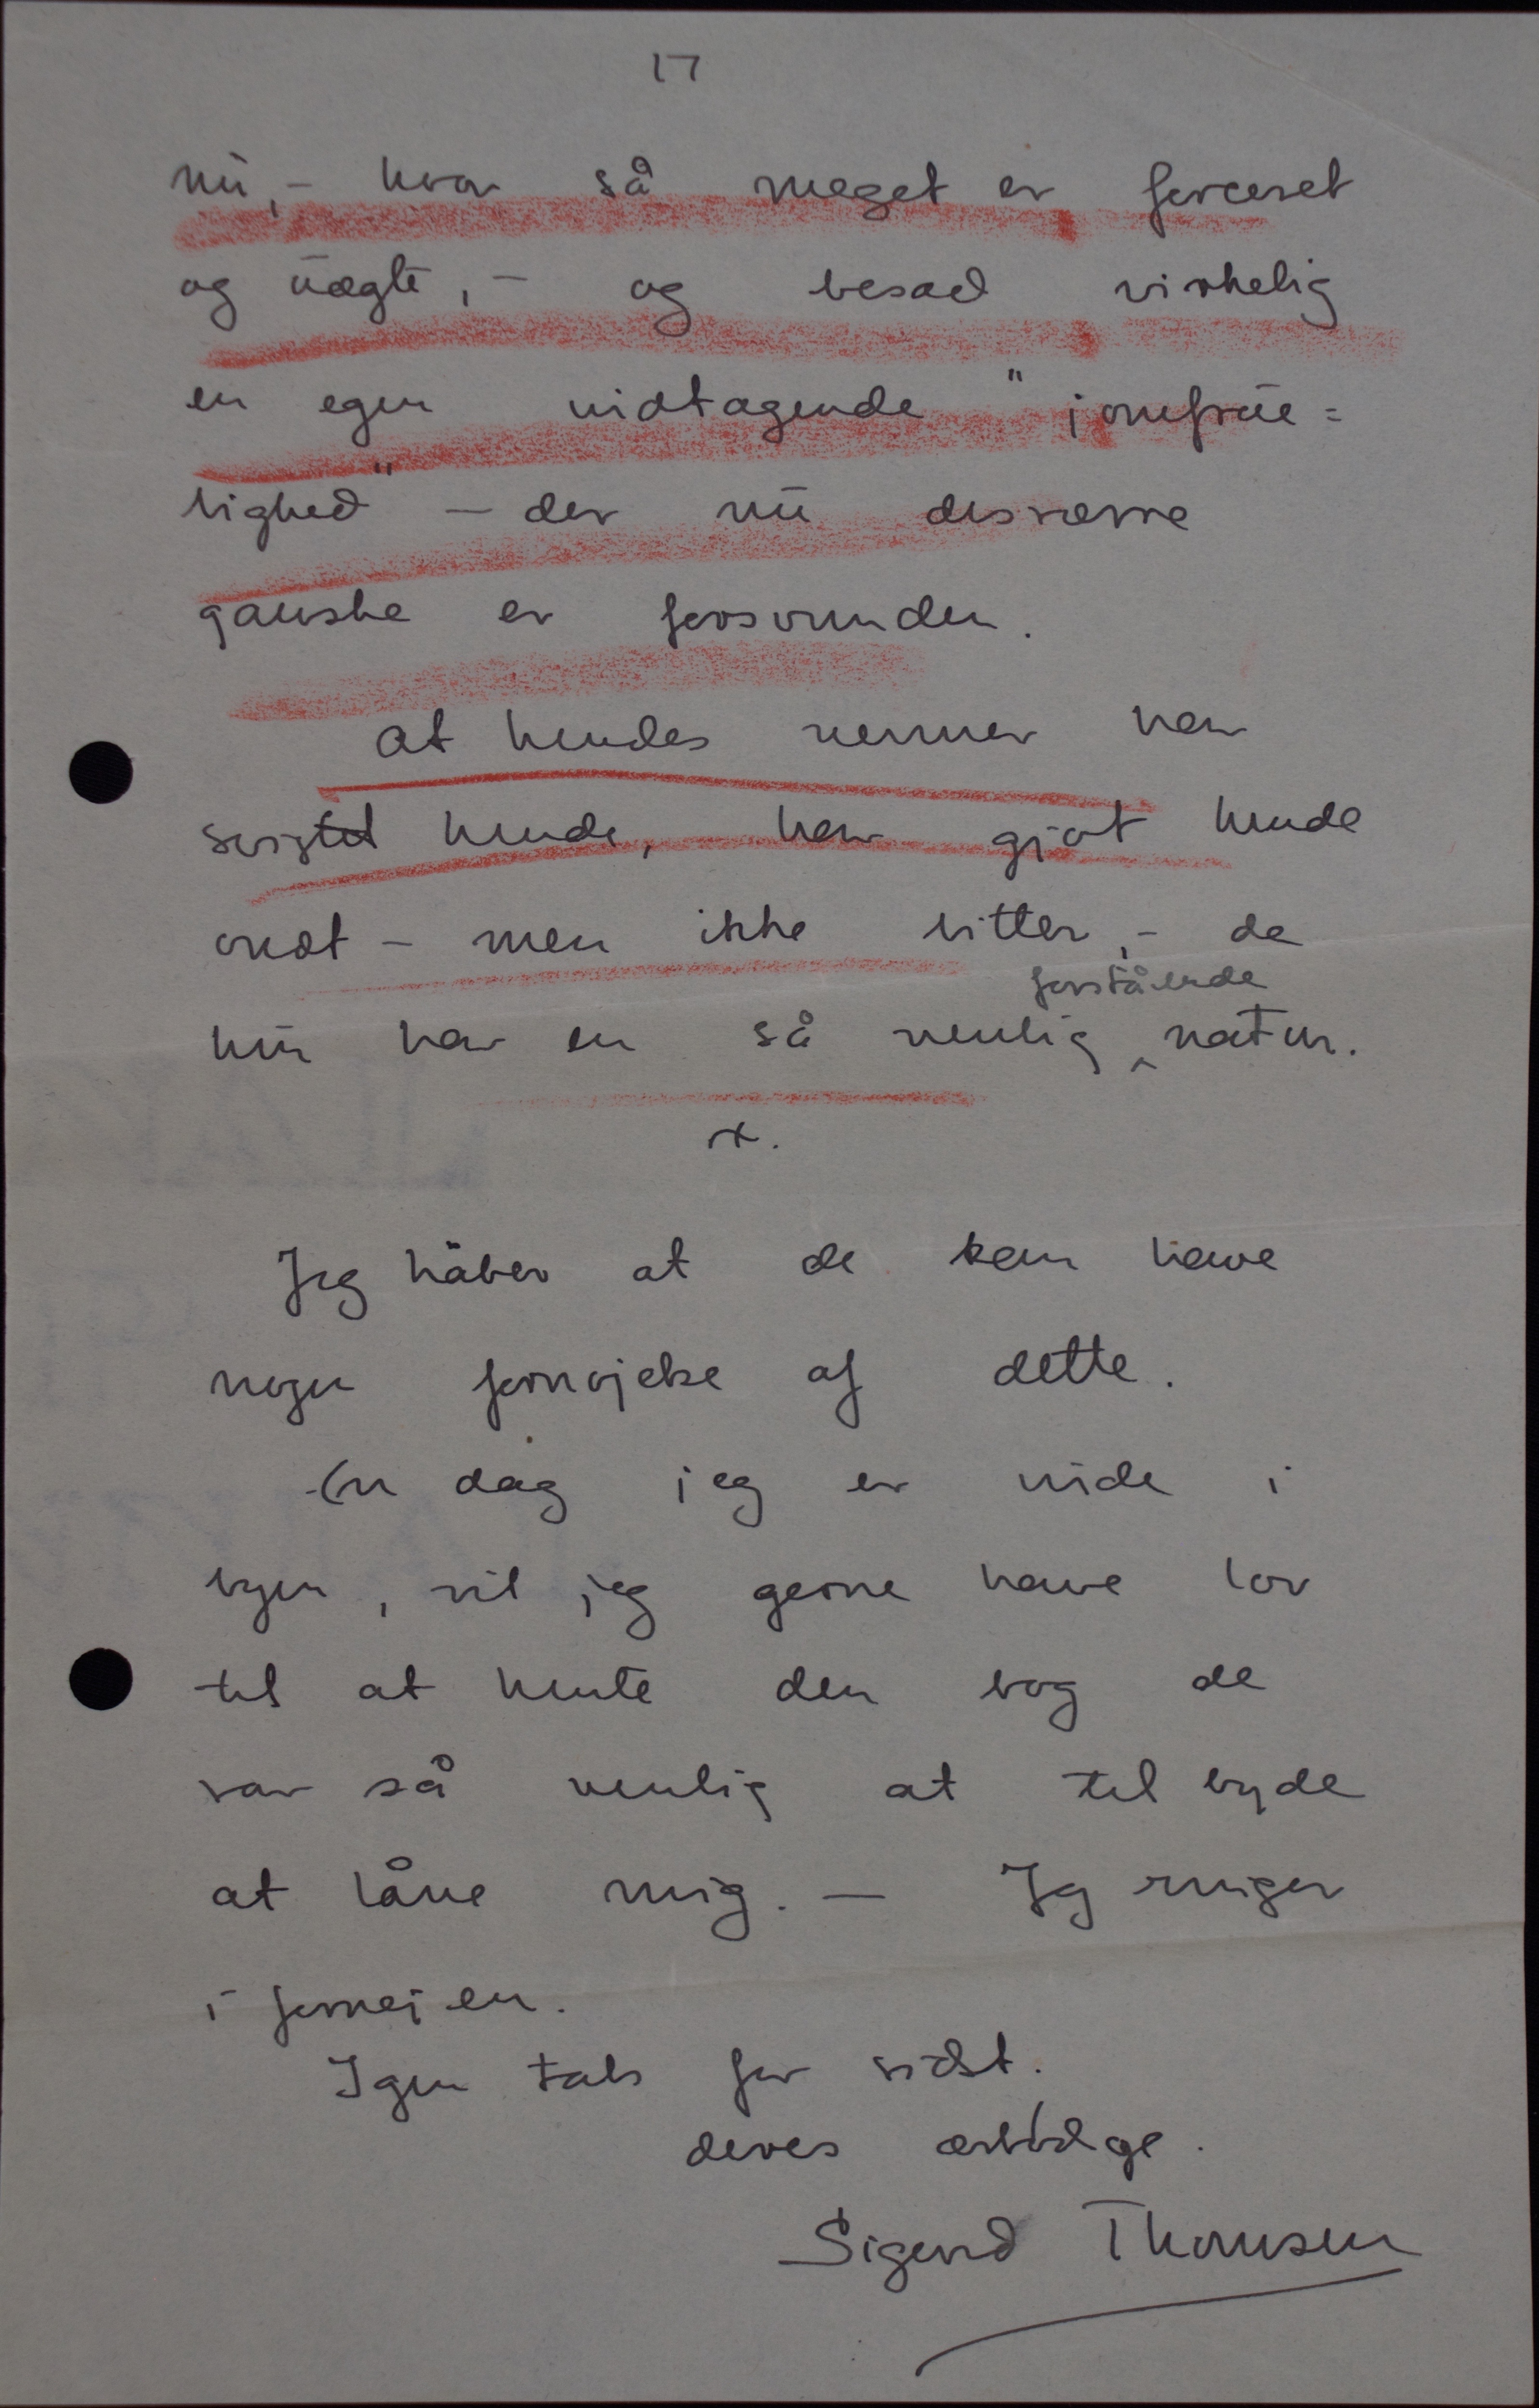 17
nu, – hvor så meget er forceret
og uægte, – og besad virkelig
en egen vidtagende "jomfrue=
lighed" – der nu desværre
ganske er forsvunden.
At hendes venner har
svigtet hende, har gjort hende
ondt – men ikke bitter, – de
forstående
hun har en så venlig ^ natur.
x.
Jeg håber at de kan have
nogen fornøjelse af dette.
En dag jeg er inde i
byen, vil jeg gerne have lov
til at hente den bog de
var så venlig at tilbyde
at låne mig. – Jeg ringer
i forvejen.
Igen tak for sidst.
deres ærbødige.
Sigurd Thomsen